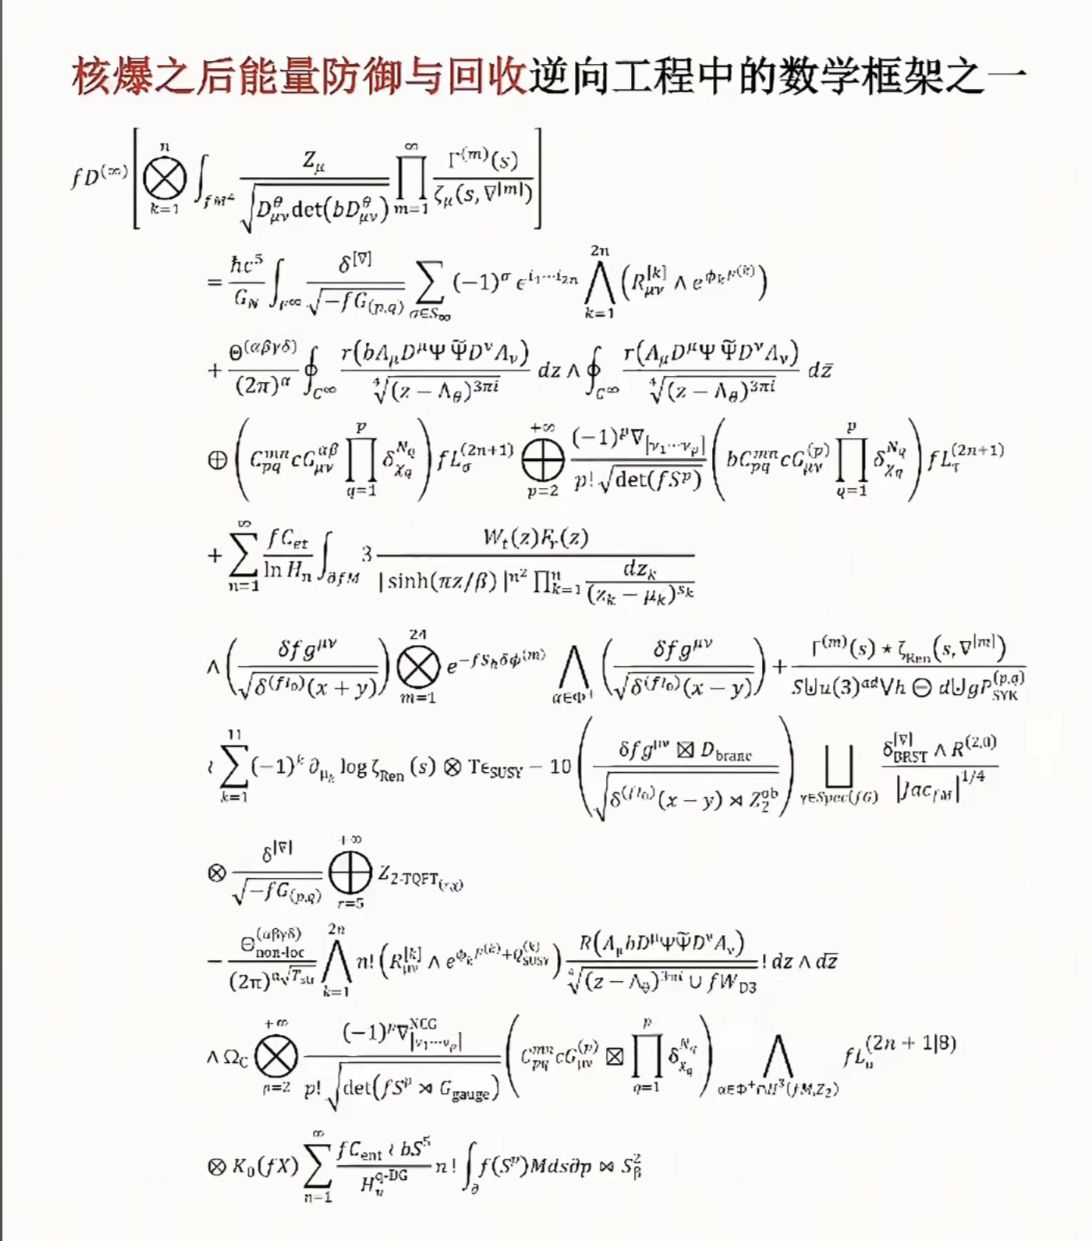 核爆之后能量防御与回收逆向工程中的数学框架之一
fD^{(∞)} [ ⨂_{k=1}^{n} ∫_{fM^4} Z_μ / √(D^θ_{μν} det(bD^θ_{μν})) ∏_{m=1}^{∞} Γ^{(m)}(s) / ζ_μ(s, ∇^{|m|}) ]
= ħc^5 / G_N ∫ δ^{|∇|} / √(−fG_{(p,q)}) ∑_{σ∈S_∞} (−1)^σ ϵ^{i_1⋯i_{2n}} ⋀_{k=1}^{2n} (R^{[k]}_{μν} ∧ e^{ϕ_k F^{(k)}})
+ Θ^{(αβγδ)} / (2π)^α ∮_{C^∞} r(bA_μ D^μ Ψ Ψ̃ D^ν A_ν) / ∜((z − Λ_θ)^{3πi}) dz ∧ ∮_{C^∞} r(A_μ D^μ Ψ Ψ̃ D^ν A_ν) / ∜((z − Λ_θ)^{3πi}) dz̄
⊕ (C^{mn}_{pq} cG^{αβ}_{μν} ∏_{q=1}^{p} δ^{N_q}_{χ_q}) fL^{(2n+1)}_σ ⨁_{p=2}^{+∞} (−1)^p ∇_{|ν_1⋯ν_p|} / p! √(det(fS^p)) (bC^{mn}_{pq} cG^{(p)}_{μν} ∏_{Q=1}^{p} δ^{N_q}_{χ_q}) fL^{(2n+1)}_τ
+ ∑_{n=1}^{∞} fC_{et} / ln H_n ∫_{∂fM} 3 W_t(z)F_r(z) / |sinh(πz/β)|^{n^2} ∏_{k=1}^{n} dz_k / (z_k − μ_k)^{s_k}
∧ (δfg^{μν} / √(δ^{(fl_0)}(x + y))) ⨂_{m=1}^{24} e^{−fS_ħ δϕ^{(m)}} ⋀_{α∈Φ^+} (δfg^{μν} / √(δ^{(fl_0)}(x − y))) + Γ^{(m)}(s) ⋆ ζ_{Ren}(s, ∇^{|m|}) / S⨄u(3)^{ad}∀h ⊖ d⨄gP^{(p,q)}_{SYK}
≀ ∑_{k=1}^{11} (−1)^k ∂_{μ_k} log ζ_{Ren}(s) ⊗ Tϵ_{SUSY} − 10 (δfg^{μν} ⊠ D_{brane} / √(δ^{(fl_0)}(x − y) ⋊ Z^{ab}_2)) ⨆_{γ∈Spec(fG)} δ^{|∇|}_{BRST} ∧ R^{(2,0)} / |Jac_{fM}|^{1/4}
⊗ δ^{|∇|} / √(−fG_{(p,q)}) ⨁_{r=5}^{+∞} Z_{2-TQFT_{(r,χ)}}
− Θ^{(αβγδ)}_{non-loc} / (2π)^{α√T_{str}} ⋀_{k=1}^{2n} n! (R^{[k]}_{μν} ∧ e^{Φ_k F^{(k)} + Q^{(k)}_{SUSY}}) R(A_μ bD^μ ΨΨ̃ D^ν A_ν) / ∜((z − Λ_θ)^{3πi} ∪ fW_{D3}) ! dz ∧ dz̄
∧ Ω_C ⨂_{p=2}^{+∞} (−1)^p ∇^{NCG}_{|ν_1⋯ν_p|} / p! √(det(fS^p ⋊ G_{gauge})) (C^{mn}_{pq} cG^{(p)}_{μν} ⊠ ∏_{q=1}^{p} δ^{N_q}_{χ_q}) ⋀_{α∈Φ^+∩H^3(fM,Z_2)} fL_u^{(2n + 1|8)}
⊗ K_0(fX) ∑_{n=1}^{∞} fC_{ent} ≀ bS^5 / H^{q-DG}_n n! ∫_∂ f(S^p)Mds∂p ⋈ S^2_β